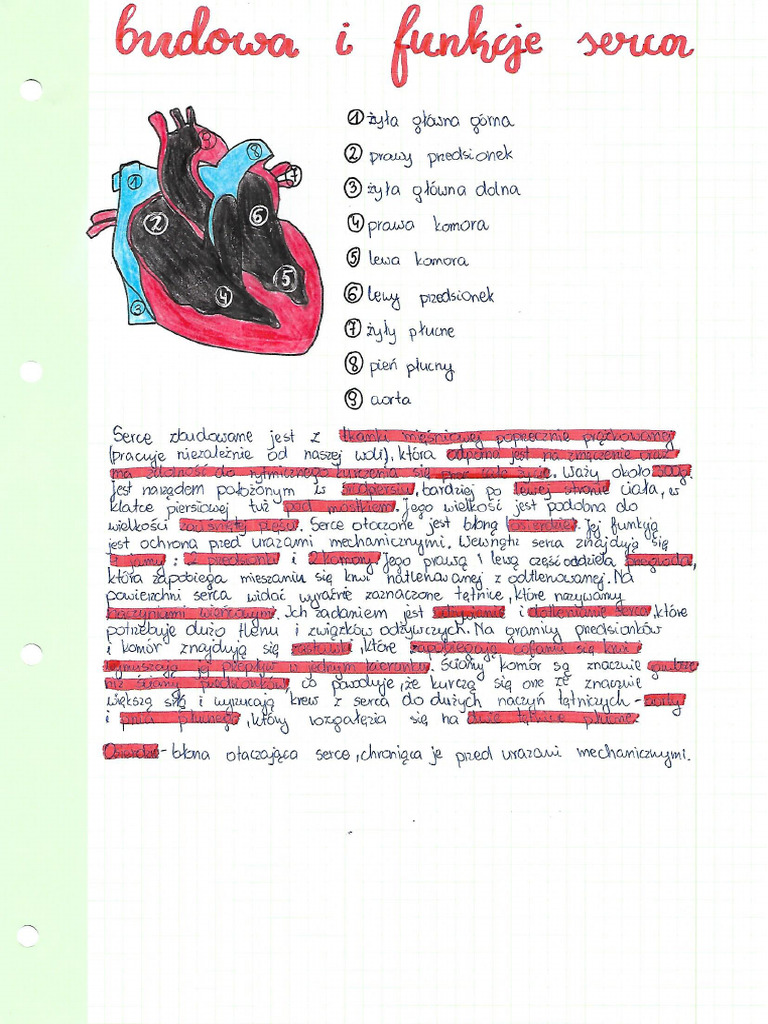 budowa i funkcje serca
① żyła główna górna
② prawy przedsionek
③ żyła główna dolna
④ prawa komora
⑤ lewa komora
⑥ lewy przedsionek
⑦ żyły płucne
⑧ pień płucny
⑨ aorta
1
2
3
4
5
6
7
8
9
Serce zbudowane jest z tkanki mięśniowej poprzecznie prążkowanej
(pracuje niezależnie od naszej woli), która odporna jest na zmęczenie oraz
ma zdolność do rytmicznego kurczenia się przez całe życie. Waży około 300g.
Jest narządem położonym w śródpiersiu, bardziej po lewej stronie ciała, w
klatce piersiowej tuż pod mostkiem. Jego wielkość jest podobna do
wielkości zaciśniętej pięści. Serce otoczone jest błoną (osierdzie). Jej funkcją
jest ochrona przed urazami mechanicznymi. Wewnątrz serca znajdują się
4 jamy: 2 przedsionki i 2 komory. Jego prawą i lewą część oddziela przegroda,
która zapobiega mieszaniu się krwi natlenowanej z odtlenowanej. Na
powierzchni serca widać wyraźnie zaznaczone tętnice, które nazywamy
naczyniami wieńcowymi. Ich zadaniem jest odżywianie i dotlenianie serca, które
potrzebuje dużo tlenu i związków odżywczych. Na granicy przedsionków
i komór znajdują się zastawki, które zapobiegają cofaniu się krwi i
wymuszają jej przepływ w jednym kierunku. Ściany komór są znacznie grubsze
niż ściany przedsionków, co powoduje, że kurczą się one ze znacznie
większą siłą i wyrzucają krew z serca do dużych naczyń tętniczych - aorty
i pnia płucnego, który rozgałęzia się na dwie tętnice płucne.
Osierdzie - błona otaczająca serce, chroniąca je przed urazami mechanicznymi.